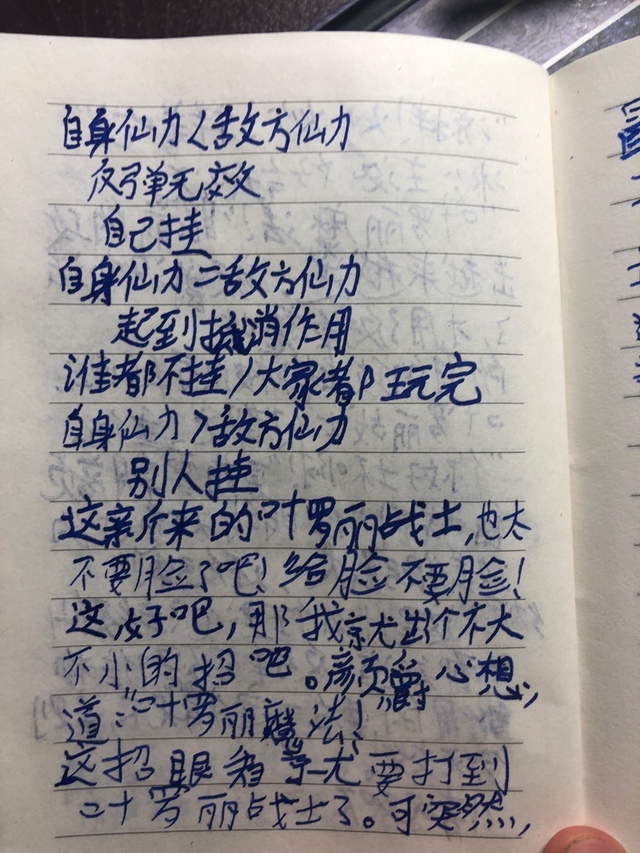 自身仙力<敌方仙力
反弹无效
自己挂
自身仙力=敌方仙力
起到抵消作用
谁都不挂/大家都玩完
自身仙力>敌方仙力
别人挂
这亲斤来的叶罗丽战士,也太
不要脸了吧!给脸不要脸!
这好吧,那我就出个不大
不小的招吧。颜爵心想,
道:“叶罗丽魔法!
这招眼看就要打到
叶罗丽战士了。可突然,